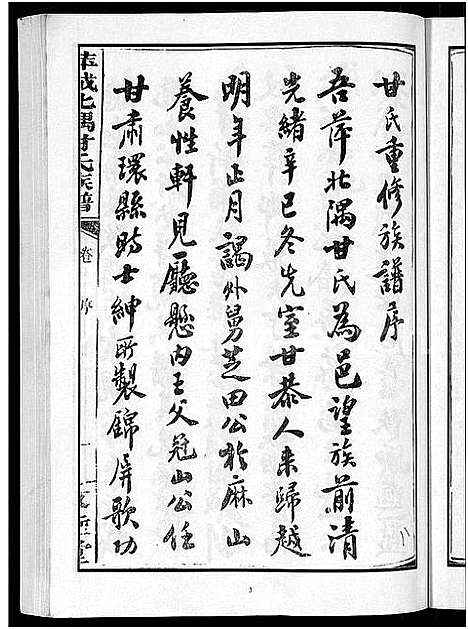 甘氏重修族譜序
吾萍北隅甘氏為邑望族前清
光緒辛巳冬先室甘恭人來歸越
明年正月謁外舅芝田公於麻山
養性軒見廳懸內王父冠山公任
甘肅環縣時士紳所製錦屏歌功
萍城北隅甘氏族譜
卷
序